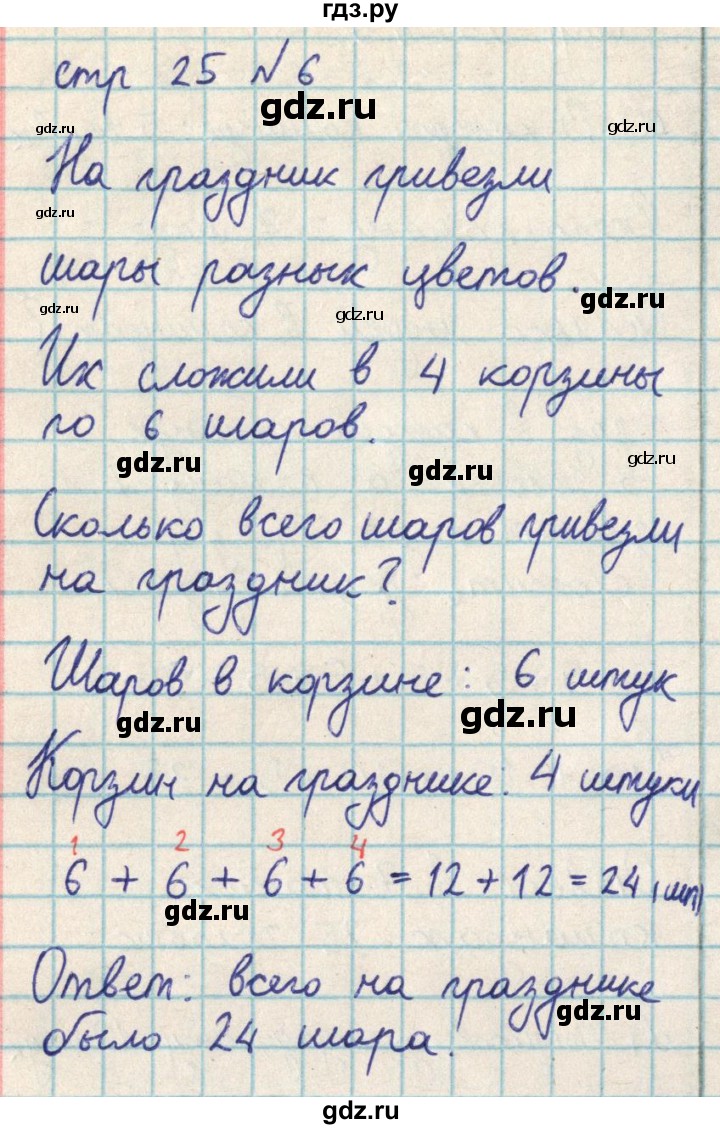 гдз.ру
стр 25 №6
gdz.ru
gdz.ru
gdz.ru
На праздник привезли
gdz.ru
шары разных цветов.
gdz.ru
gdz.ru
gdz.ru
Их сложили в 4 корзины
по 6 шаров.
gdz.ru
gdz.ru
gdz.ru
Сколько всего шаров привезли
на праздник?
Шаров в корзине: 6 штук
gdz.ru
gdz.ru
Корзин на празднике: 4 штуки
1 2 3 4
6 + 6 + 6 + 6 = 12 + 12 = 24 (шт)
gdz.ru
Ответ: всего на празднике
gdz.ru
было 24 шара.
gdz.ru